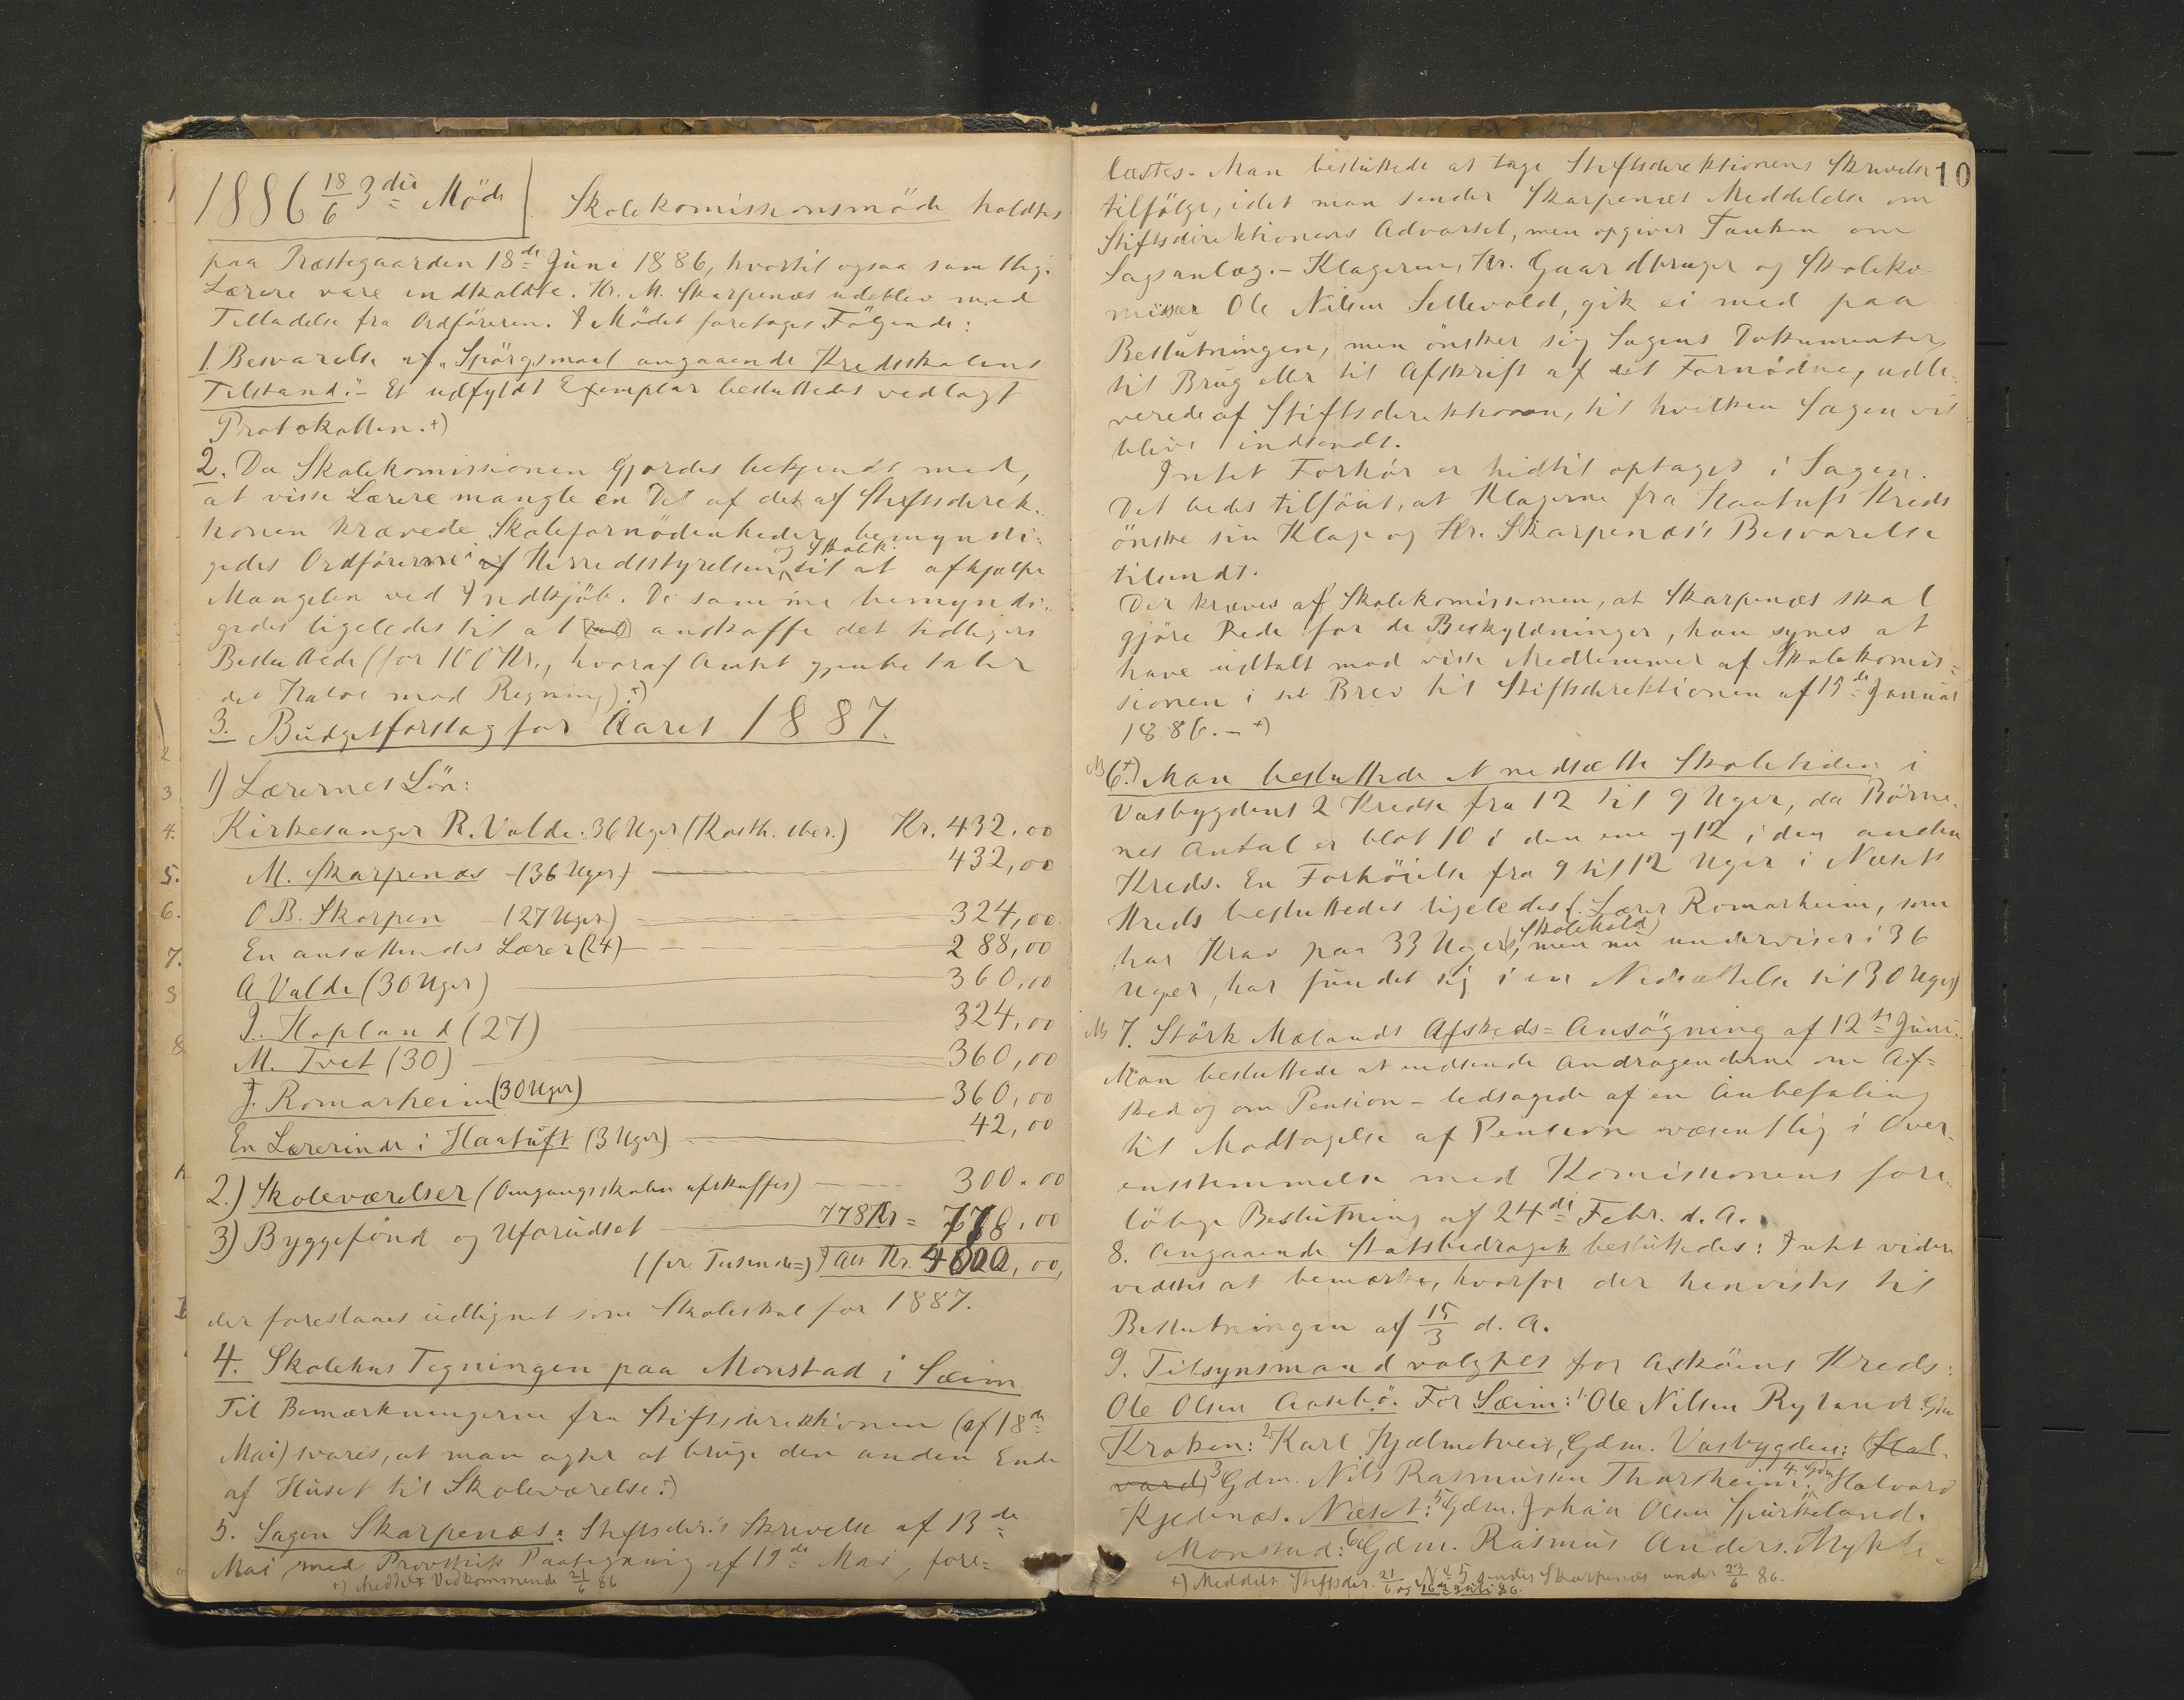 1886 18/6 3die Möde
Skolekomissionsmöde holdtes
paa Præstegaarden 18de Juni 1886, hvortil ogsaa samtlige
Lærere vare indkaldte. Hr. M. Skarpenæs udeblev med
Tilladelse fra Ordföreren. I Mödet foretoges Fölgende:
1. Besvarelse af „Spörgsmaal angaaende Kredsskolens
Tilstand.” - Et udfyldt Exemplar besluttedes vedlagt
Protokollen. +)
2. Da Skolekomissionen gjordes bekjendt med,
at visse Lærere mangle en Del af det af Stiftsdirek-
tionen krævede Skolefornödenheder, bemyndi-
gedes Ordförerne i af Herredsstyrelsen og Skolek. til at afhjælpe
Mangelen ved Indkjöb. De samme bemyndi-
gedes ligeledes til at anskaffe det tidligere
Besluttede (for 100 Kr., hvoraf Amtet gjenbetaler
det Halve mod Regning). +)
3. Budgetforslag for Aaret 1887.
1) Lærernes Lön:
Kirkesanger R. Valde: 36 Uger (Kosth. iber.) Kr. 432,00
M. Skarpenæs - (36 Uger) 432,00
O B. Skarpen - (27 Uger) 324,00
En ansættendes Lærer (24) 288,00
A Valde (30 Uger) 360,00
J. Hopland (27) 324,00
M. Tvet (30) 360,00
J. Romarheim (30 Uger) 360,00
En Lærerinde i Haatuft (3 Uger) 42,00
2.) Skoleværelser (Omgangsskolen afskaffes) 300.00
3) Byggefond og Uforudset 778 Kr = 778,00
(fire Tusende =) I Alt Kr. 4000,00,
der foreslaaes udlignet som Skoleskat for 1887.
4. Skolehus Tegningen paa Monstad i Sæim
Til Bemærkningerne fra Stiftsdirektionen (af 18de
Mai) svares, at man agter at bruge den anden Ende
af Huset til Skoleværelse. +)
5. Sagen Skarpenæs: Stiftsdir.'s Skrivelse af 13de
Mai med Provstiets Paategning af 19de Mai, fore-
+) Meddelt Vedkommende 21/6 86
10
læstes. Man besluttede at tage Stiftsdirektionens Skrivelse
tilfölge, idet man sender Skarpenæs Meddelelse om
Stiftsdirektionens Advarsel, men opgiver Tanken om
Sagsanlæg. - Klageren, Hr. Gaardbruger og Skoleko-
missær Ole Nilsen Sellevold, gik ei med paa
Beslutningen, men önsker sig Sagens Dokumenter
til Brug eller til Afskrift af det Fornödne, udle-
verede af Stiftsdirektionen, til hvilken Sagen vil
blive indsendt.
Intet Forhör er hidtil optaget i Sagen.
Det bedes tilföiet, at Klagerne fra Haatufts Kreds
önske sin Klage og Hr. Skarpenæs's Besvarelse
tilsendt.
Der kræves af Skolekomissionen, at Skarpenæs skal
gjöre Rede for de Beskyldninger, han synes at
have udtalt mod visse Medlemmer af Skolekomis-
sionen i sit Brev til Stiftsdirektionen af 15de Januar
1886. - +)
6. +) Man besluttede at nedsætte Skoletiden i
Vasbygdens 2 Kredse fra 12 til 9 Uger, da Börne-
nes Antal er blot 10 i den ene og 12 i den anden
Kreds. En Forhöielse fra 9 til 12 Uger i Næsets
Kreds besluttedes ligeledes (. Lærer Romarheim, som
har Krav paa 33 Ugers (Skolehold), men nu underviser i 36
Uger, har fundet sig i en Nedsættelse til 30 Uger)
7. Störk Mælands Afskeds-Ansögning af 12te Juni.
Man besluttede at indsende Andragenderne om Af-
sked og om Pension - ledsagede af en Anbefaling
til Modtagelse af Pension væsentlig i Over-
ensstemmelse med Komissionens fore-
löbige Beslutning af 24de Febr. d. A.
8. Angaaende Statsbidraget besluttedes: Intet videre
vidstes at bemærke, hvorfor der henvistes til
Beslutningen af 15/3 d. A.
9. Tilsynsmænd valgtes for Asköens Kreds:
Ole Olsen Aasebö. For Sæim: 1. Ole Nilsen Ryland. Gdm
Kroken: 2. Karl Hjelmetveit, Gdm. Vasbygden: (Hal-
vard) 3 Gdm. Nils Rasmussen Thorsheim. 4. Gdm Halvard
Kjedenæs. Næset: 5 Gdm. Johan Olsen Spurkeland.
Monstad: 6 Gdm. Rasmus Anders. Mykle-
+) Meddelt Stiftsdir. 21/6 og No 5 sendes Skarpenæs under 23/6 86.
16de Juli 86.